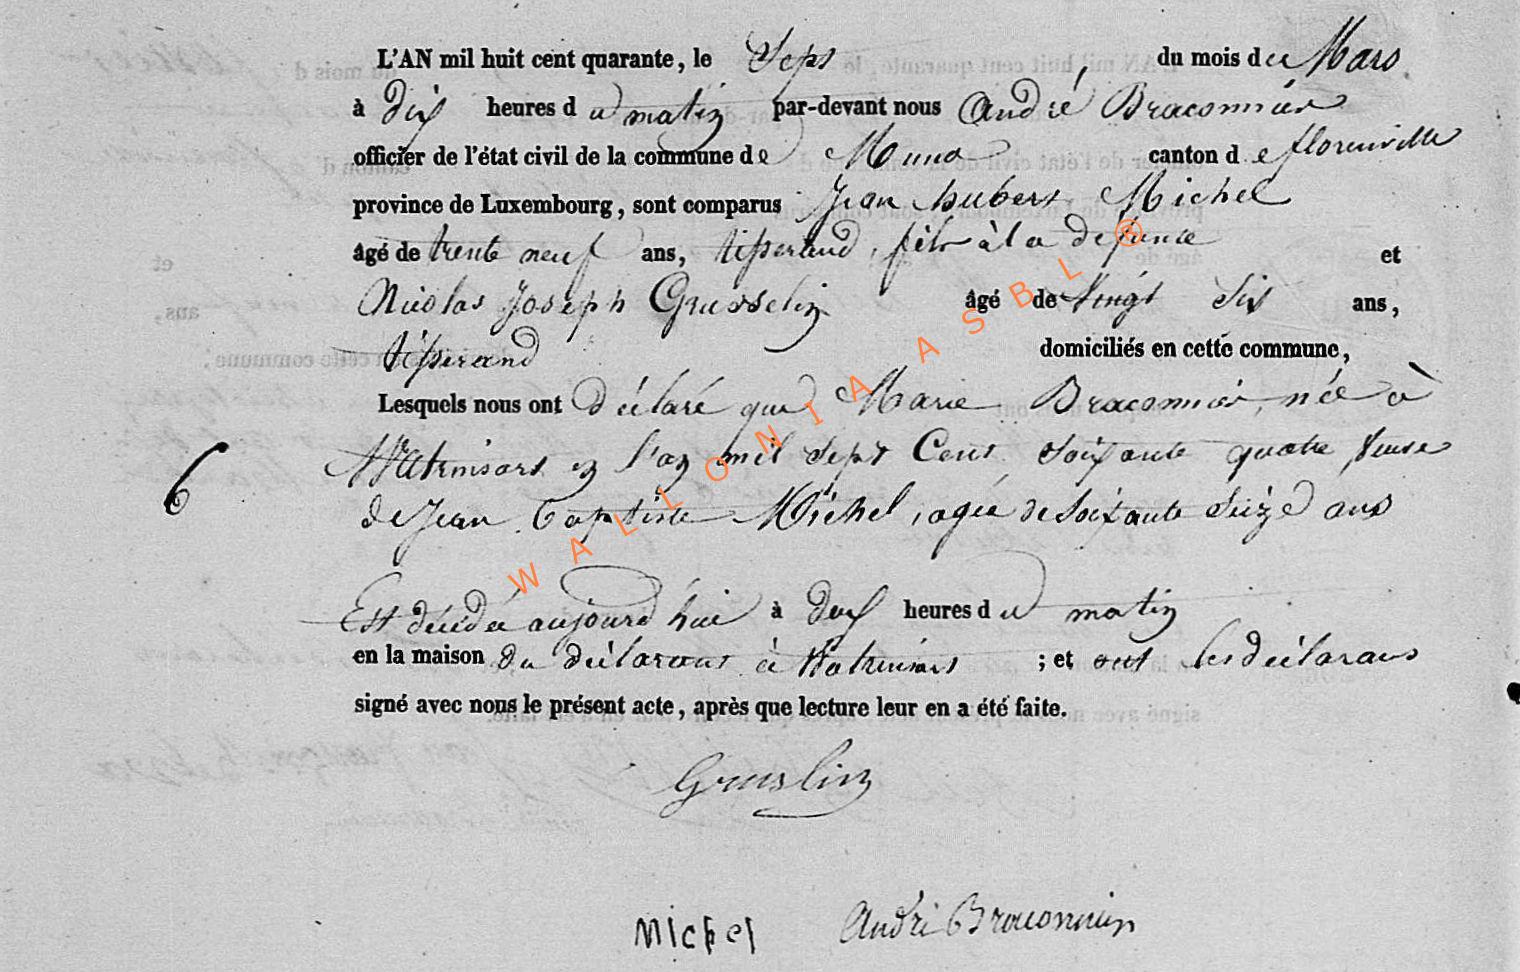 L'AN mil huit cent quarante, le Sept du mois de Mars
à dix heures du matin par-devant nous André Braconnier
officier de l'état civil de la commune de Muno canton de florenville
province de Luxembourg, sont comparus Jean hubert Michel
âgé de trente neuf ans, tisserand, fils à la défunte et
Nicolas Joseph Grusselin âgé de Vingt Six ans,
tisserand domiciliés en cette commune,
Lesquels nous ont déclaré que Marie Braconnier, née à
Watrinsart en l'an mil Sept Cent Soixante quatre veuve
6
de Jean Baptiste Michel, agée de Soixante Seize ans
Est décédée aujourd'hui à deux heures du matin
en la maison du déclarant à Watrinsart ; et ont les déclarans
signé avec nous le présent acte, après que lecture leur en a été faite.
Gruslin
Michel André Braconnier
WALLONIA ASBL ®